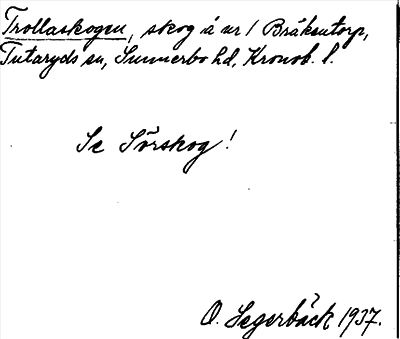 Trollaskogen, skog å nr 1 Bråkentorp,
Tutaryds sn, Sunnerbo hd, Kronob. l.
Se Sörskog!
O. Segerbäck 1937.